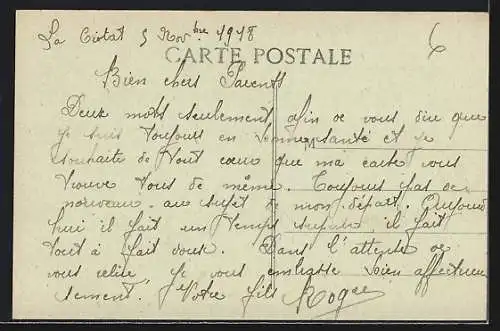 La Ciotat 5 Novbre 1918
6
CARTE POSTALE
Bien chers Parents
Deux mots seulement afin de vous dire que
je suis toujours en bonne santé et je
souhaite de tout cœur que ma carte vous
trouve tous de même. Toujours pas de
nouveau au sujet de mon départ. Aujourd
hui il fait un temps superbe, il fait
tout à fait doux. Dans l'attente de
vous relire, je vous embrasse bien affectueu
sement. Votre fils Roger